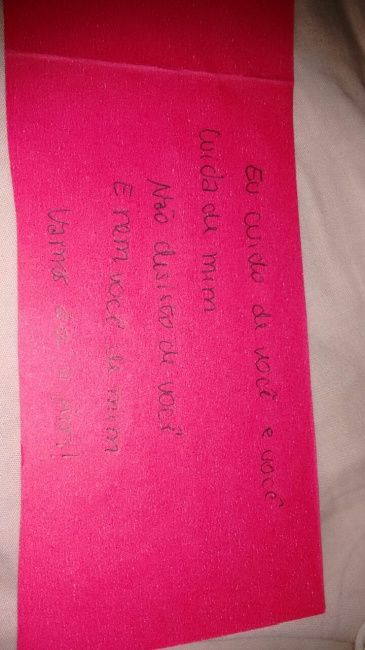 Eu cuido de você e você
Cuida de mim
Não desisto de você
E nem você de mim
Vamos